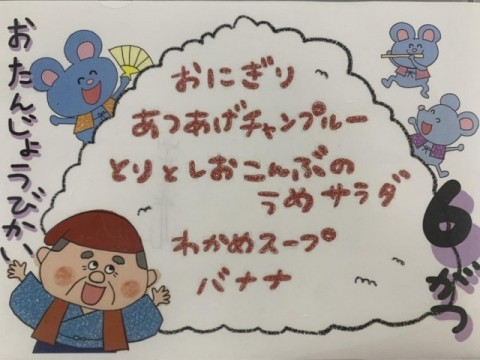 おたんじょうびかい
おにぎり
あつあげチャンプルー
とりとしおこんぶの
うめサラダ
わかめスープ
バナナ
6がつ